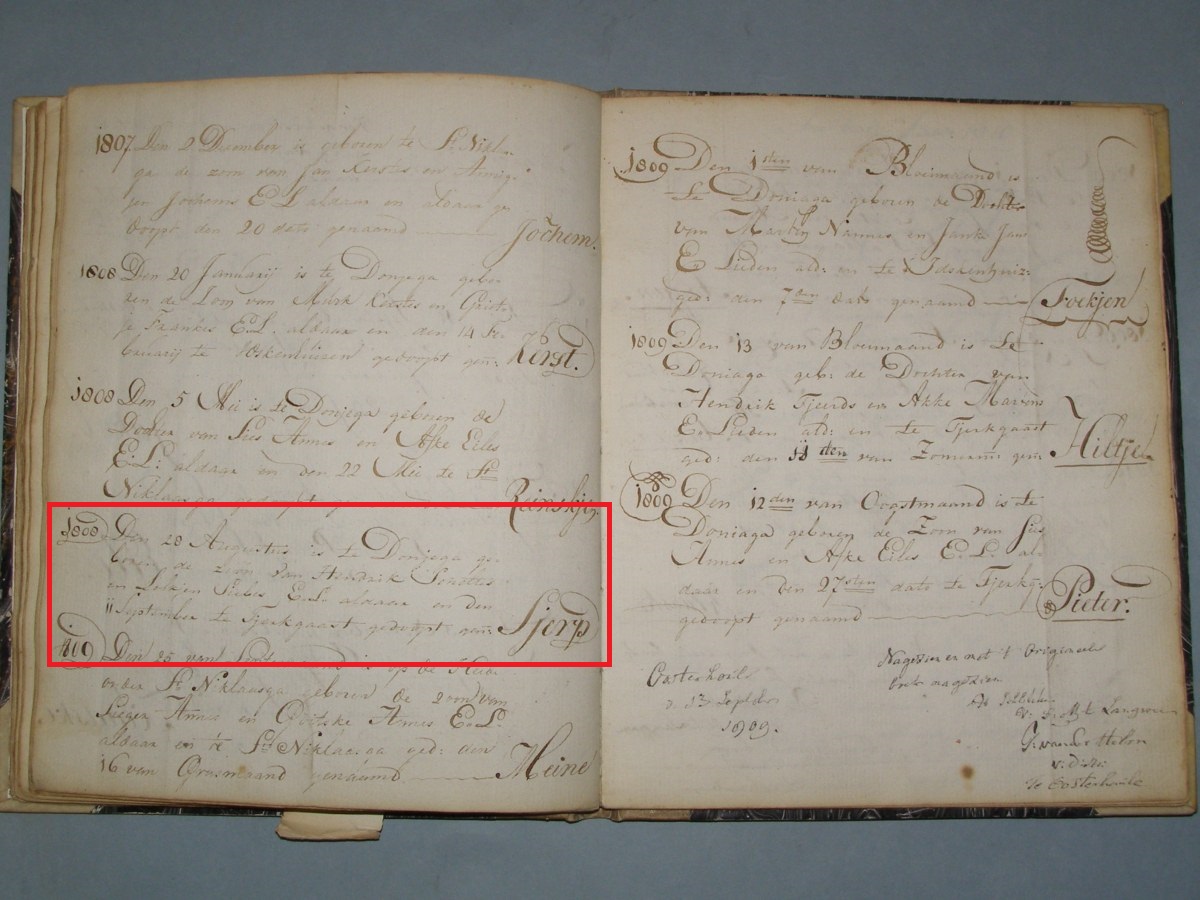 1807 Den 2 December is geboren te St. Nikla-
ga de zoon van Jan Kerstes en Antje
Jochems E L aldaar en aldaar ge
doopt den 20 dato genaamd Jochem.
1808 Den 20 Januarij is te Donjega gebo-
ren de Zoon van Murk Kerstes en Grietj-
e Frankes E.L. aldaar en den 14 Fe-
bruarij te Idskenhuizen gedoopt gen: Kerst.
1808 Den 5 Mei is te Donjega geboren de
Dochter van Sies Annes en Afke Eiles
E: L: aldaar en den 22 Mei te St
Niklaasga gedoopt Reinskjen
1808 Den 28 Augustus is te Donjega ge-
boren de zoon van Hendrik
en Siebes E:L: aldaar en den
11 September te Tjerkgaast gedoopt gen: Sjerp
1809 Den 25 van is op de Heide
onder St Niklaasga geboren de zoon van
Annes en Annes E:L:
aldaar en te St Niklaasga ged: den
16 van Grasmaand genaamd Heine
1809 Den 1sten van Bloeimaand is
te Doniaga geboren de Dochter
van Martin Nannes en Janke Jans
E Lieden ald: en te Idskenhuiz:
ged: den 7den dato genaamd Foekjen
1809 Den 13 van Bloeimaand is te
Doniaga geb: de Dochter van
Hendrik Tjeerds en Akke Martens
E. Lieden ald: en te Tjerkgaast
ged: den 11den van Zomerm: gen: Hiltje
1809 Den 12den van Oogstmaand is te
Doniaga geboren de Zoon van Sies
Annes en Afke Eiles E. L: al-
daar en den 27sten dato te Tjerkg:
gedoopt genaamd Pieter.
Oosterhoile
13 Septbr
1809.
Nagezien en met 't Origineele
G. van der Helm
te Oosterhoile